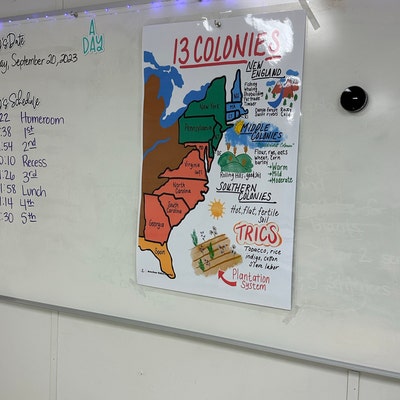 A
DAY
Date
September 20, 2023
Schedule
Homeroom
1st
2nd
Recess
3rd
Lunch
4th
5th
13 COLONIES
NEW
ENGLAND
Fishing
whaling
Shipbuilding
Fur trade
Timber
New York
MA
Pennsylvania
MIDDLE
COLONIES
Flour, rye, oats
wheat, corn
barley
→Warm
→Mild
→Moderate
Rolling Hills, good soil
Virginia
North
Carolina
South
Carolina
Georgia
Spain
SOUTHERN
COLONIES
Hot, flat, fertile
soil
TRICS
Tobacco, rice
indigo, cotton
slave labor
Plantation
System